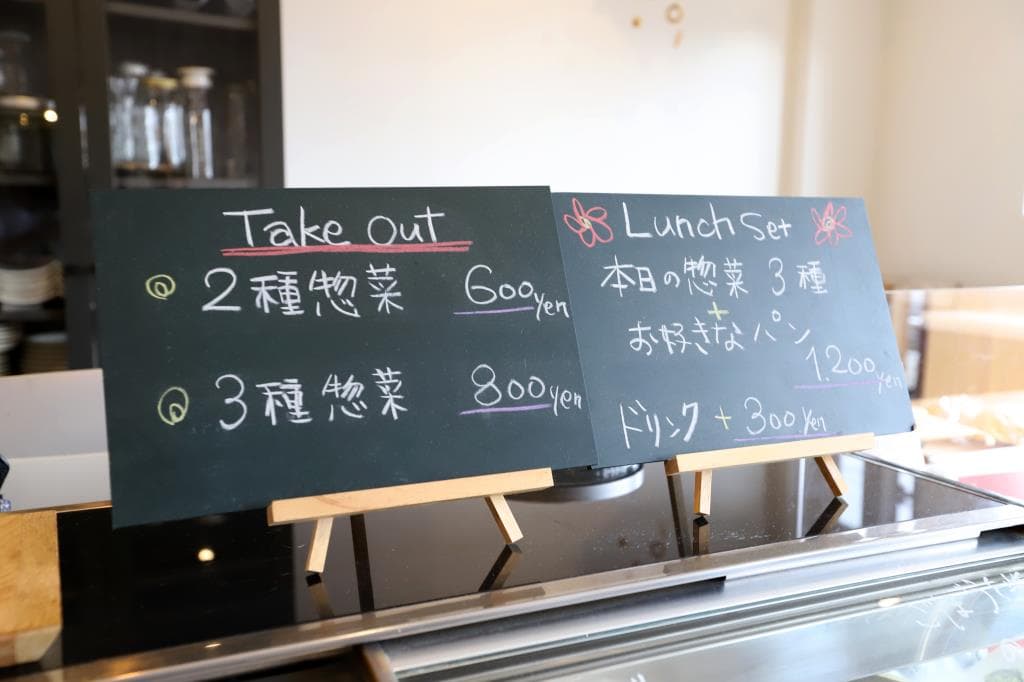 Take Out
2種惣菜 600yen
3種惣菜 800yen
Lunch Set
本日の惣菜 3種
+
お好きなパン
1.200yen
ドリンク + 300yen